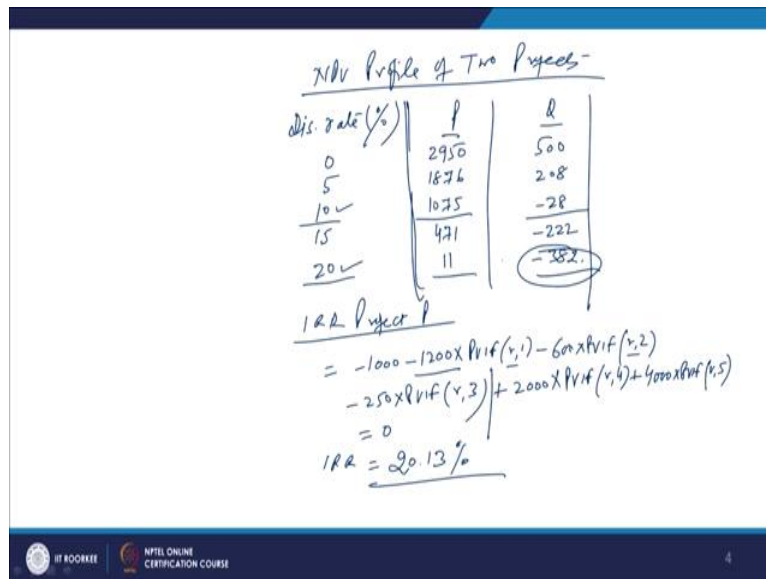 NPV Profile of Two Projects-
Dis. rate (%) P Q
0 2950 500
5 1876 208
10 ✓ 1075 -28
15 471 -222
20 ✓ 11 -382.
IRR Project P
= -1000 -1200 x Pvif (r,1) - 600 x Pvif (r,2)
-250 x Pvif (r,3) + 2000 x Pvif (r,4) + 4000 x Pvif (r,5)
= 0
IRR = 20.13 %
IIT ROORKEE NPTEL ONLINE CERTIFICATION COURSE 4